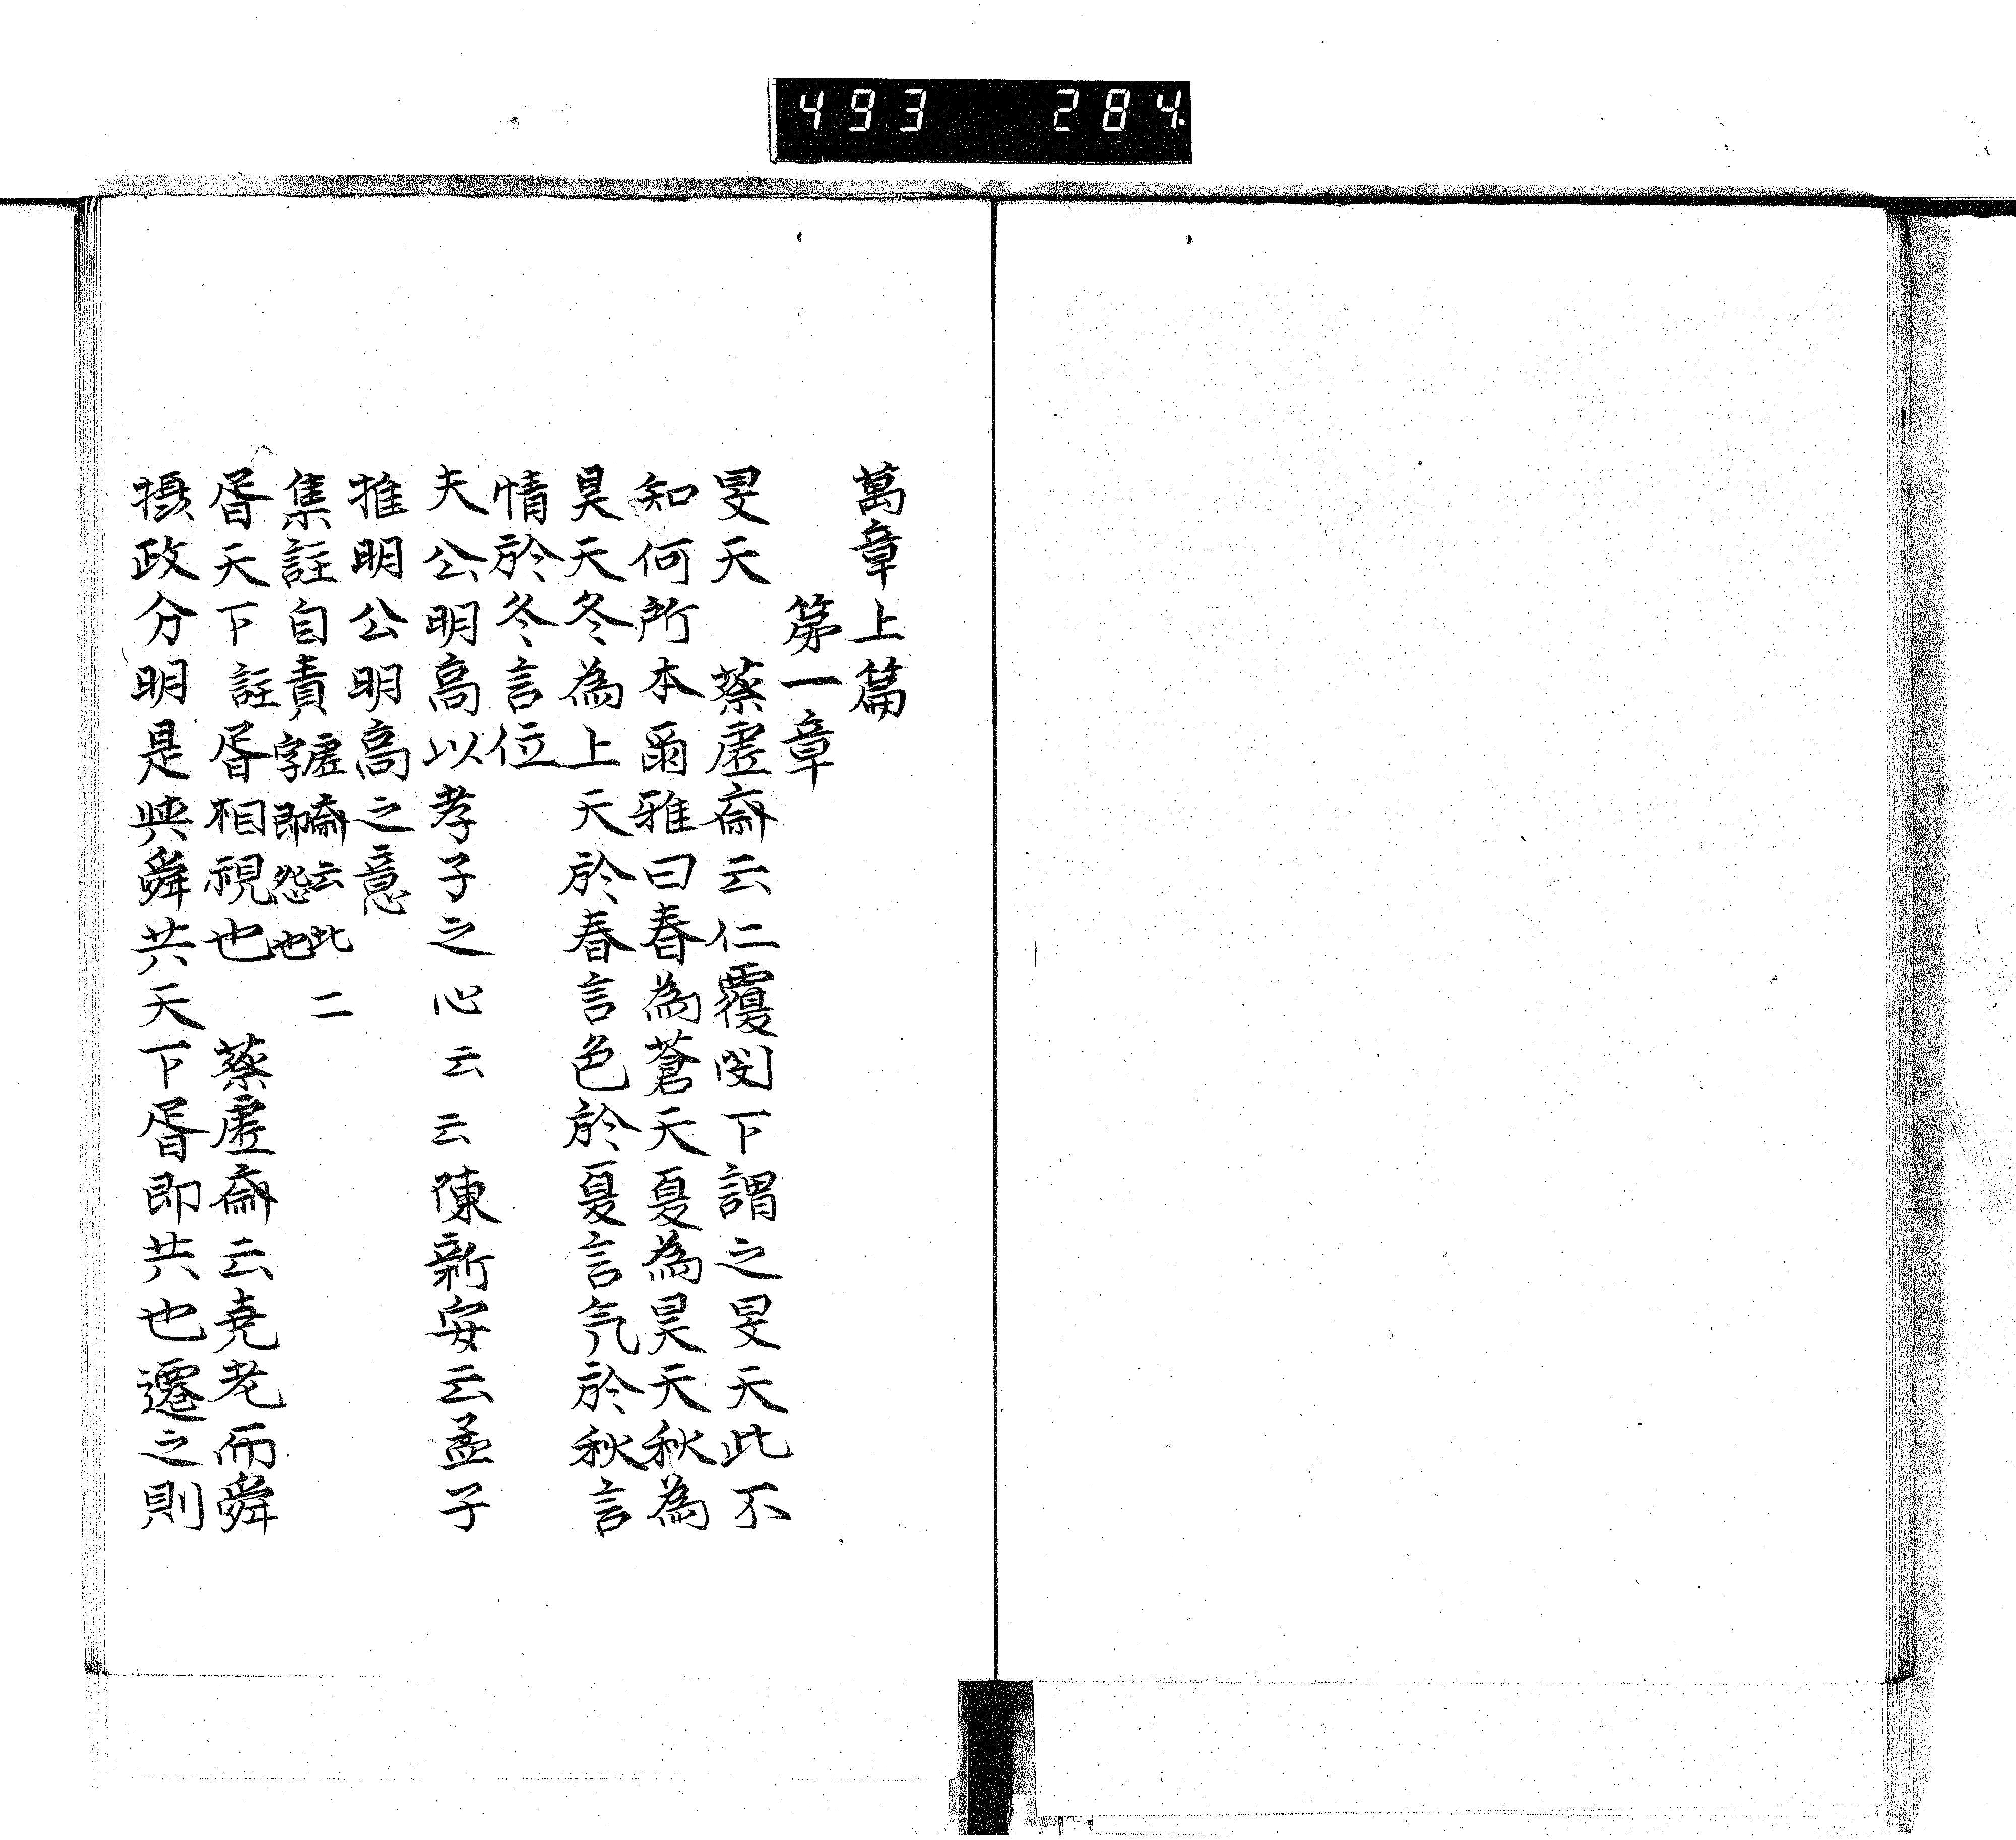 493 284
萬章上篇
第一章
旻天 蔡虚齋云仁覆閔下謂之旻天此不
知何所本爾雅曰春為蒼天夏為昊天秋為
昊天冬為上天於春言色於夏言気於秋言
情於冬言位
夫公明高以孝子之心云云陳新安云孟子
推明公明高之意
集註自責字虚齋云此二即怨也
胥天下註胥相視也 蔡虚齋云尭老而舜
攝政分明是與舜共天下胥即共也遷之則